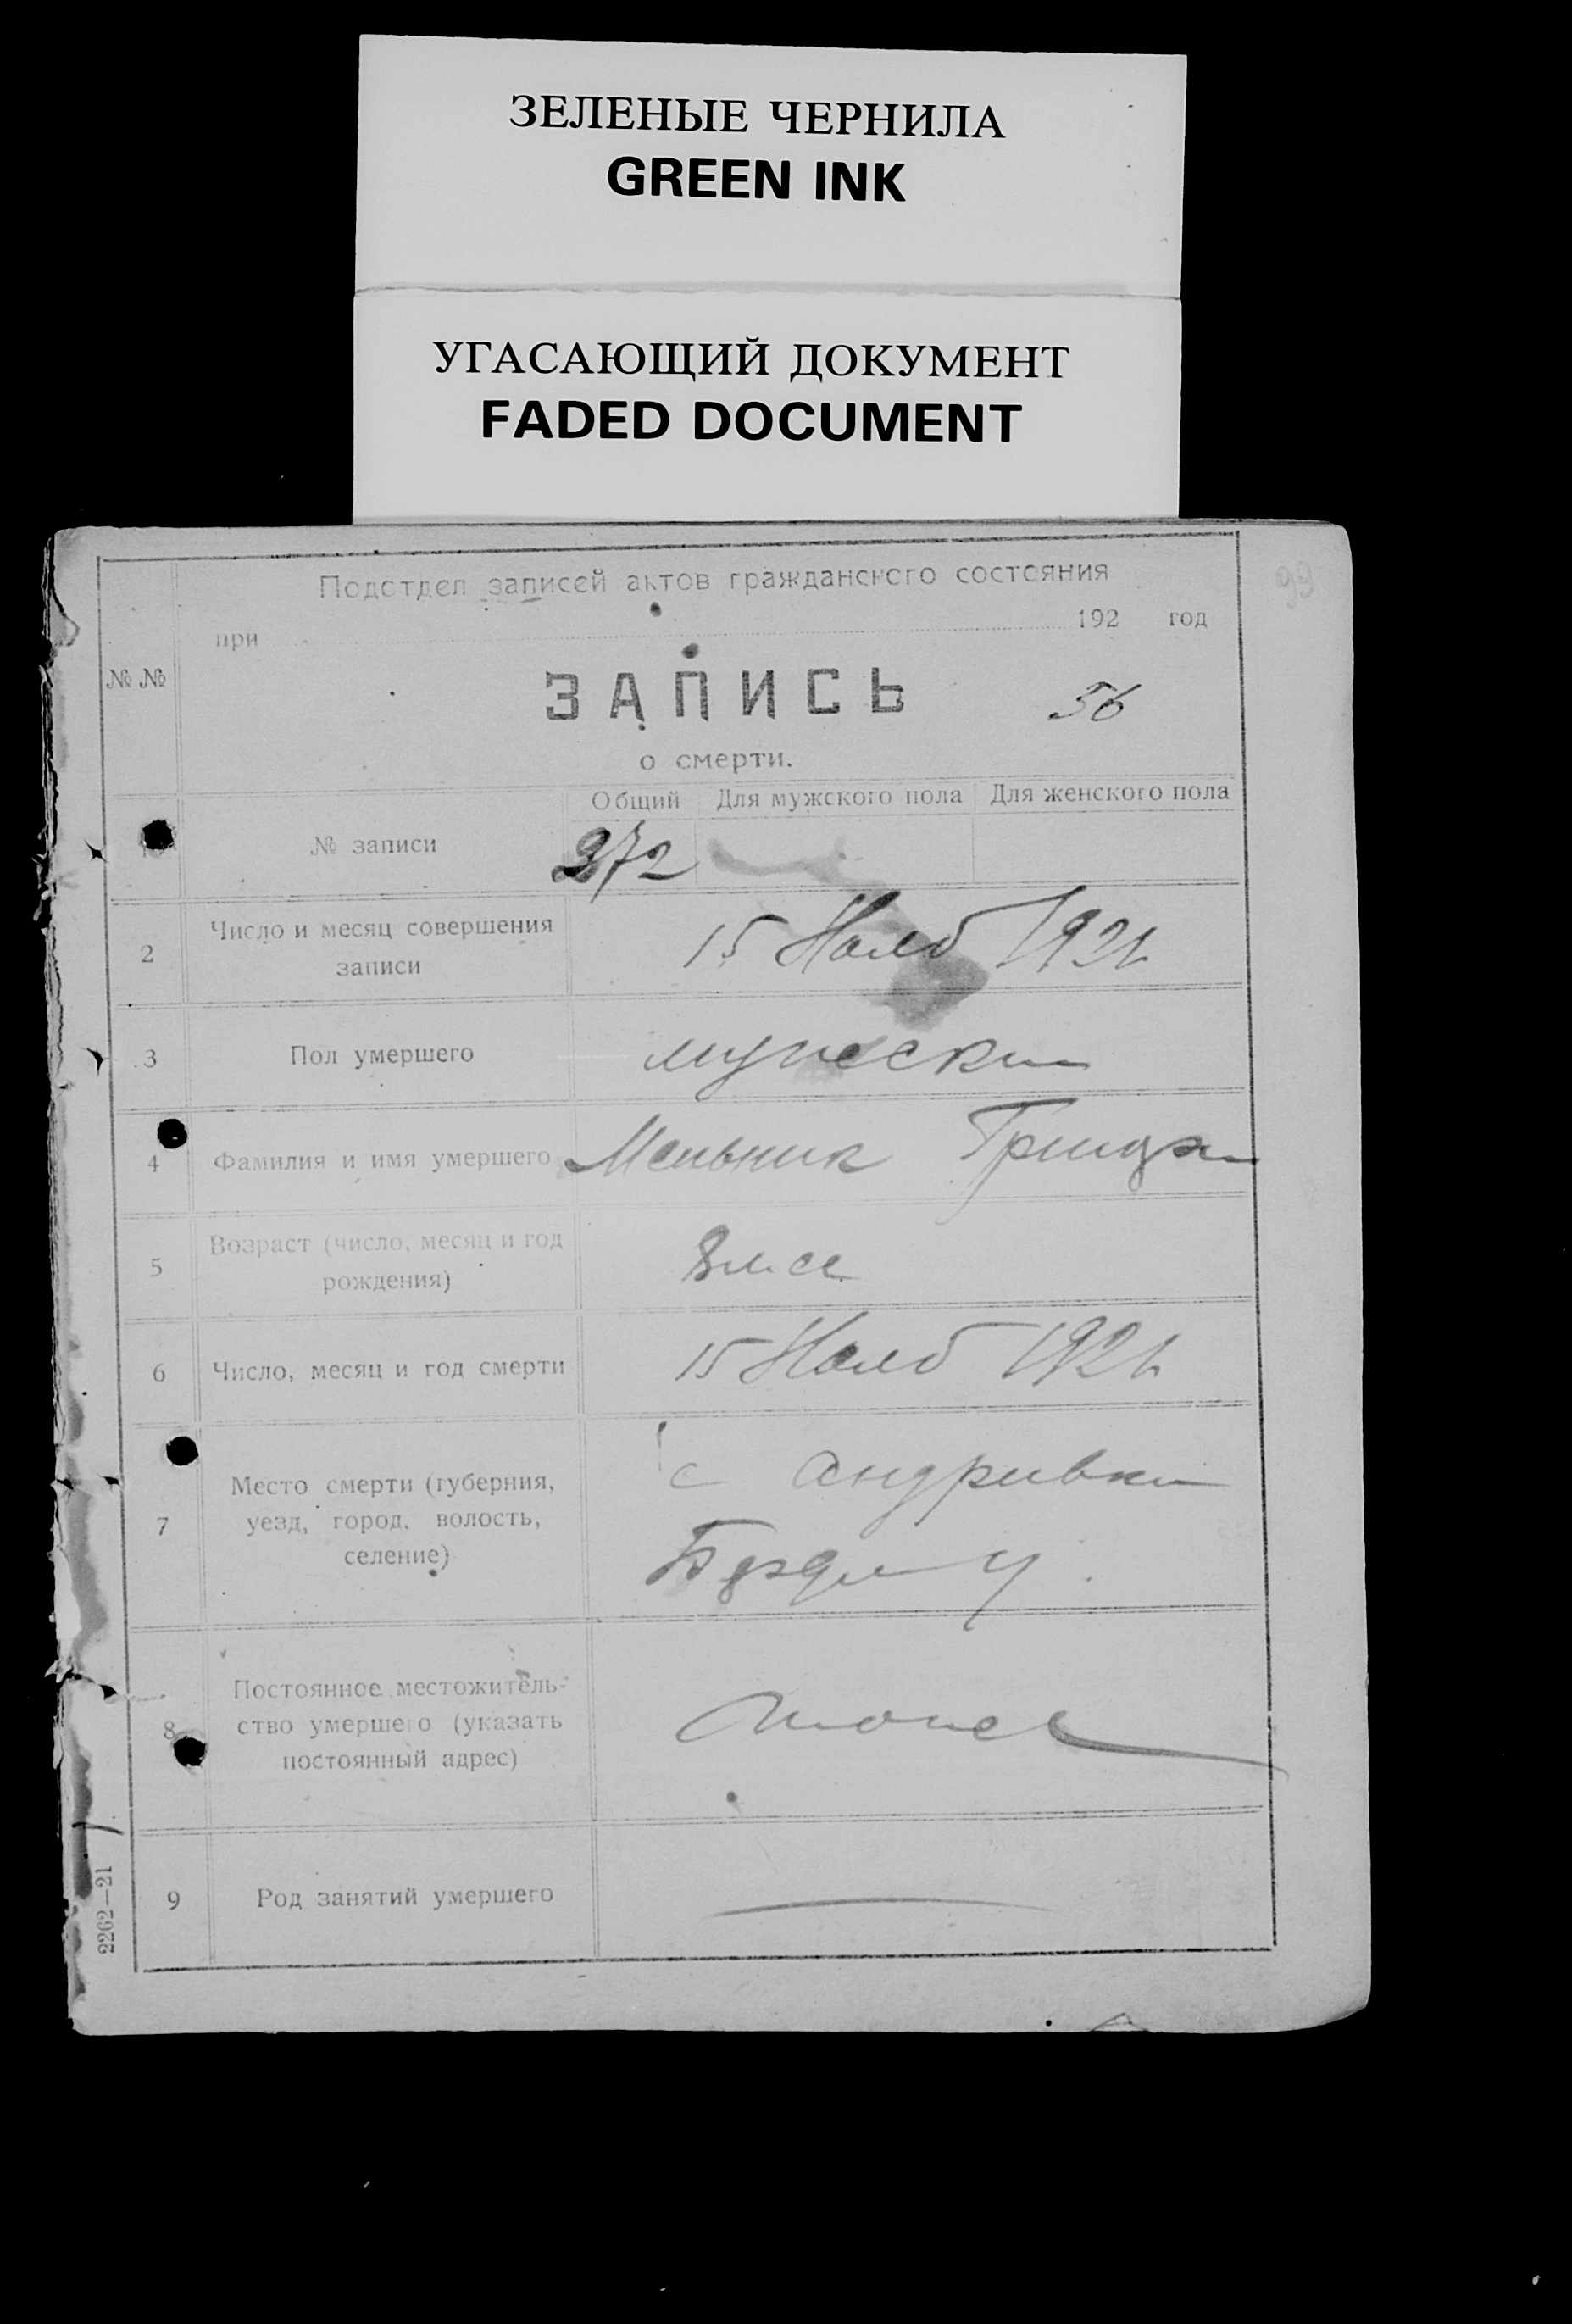 ЗЕЛЕНЫЕ ЧЕРНИЛА
GREEN INK
УГАСАЮЩИЙ ДОКУМЕНТ
FADED DOCUMENT
99
Подотдел записей актов гражданского состояния
при 192 год
№ №
ЗАПИСЬ 56
о смерти.
Общий Для мужского пола Для женского пола
№ записи 272
2 Число и месяц совершения
записи
15 Нояб 1921
3 Пол умершего мужеский
4 Фамилия и имя умершего Мельник
5 Возраст (число, месяц и год
рождения)
8 мес
6 Число, месяц и год смерти 15 Нояб 1921
7 Место смерти (губерния,
уезд, город, волость,
селение)
с Андривки
8 Постоянное местожитель-
ство умершего (указать
постоянный адрес)
9 Род занятий умершего
2262—21